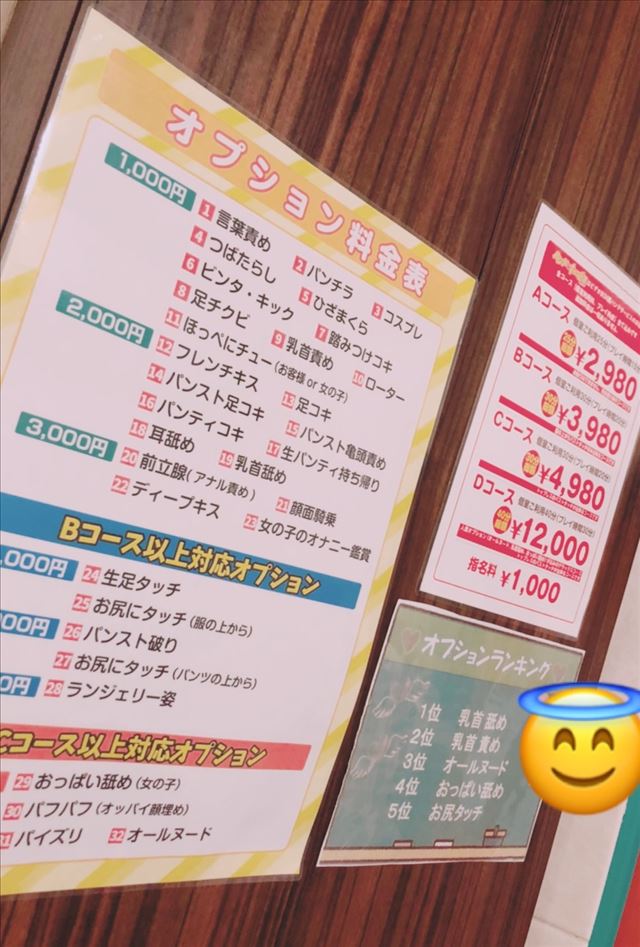 オプション料金表
1,000円
1 言葉責め
2 パンチラ
3 コスプレ
4 つばたらし
5 ひざまくら
6 ビンタ・キック
7 踏みつけコキ
8 足チクビ
9 乳首責め
10 ローター
2,000円
11 ほっぺにチュー(お客様 or 女の子)
12 フレンチキス
13 足コキ
14 パンスト足コキ
15 パンスト亀頭責め
16 パンティコキ
17 生パンティ持ち帰り
3,000円
18 耳舐め
19 乳首舐め
20 前立腺(アナル責め)
21 顔面騎乗
22 ディープキス
23 女の子のオナニー鑑賞
Bコース以上対応オプション
,000円
24 生足タッチ
25 お尻にタッチ(服の上から)
00円
26 パンスト破り
27 お尻にタッチ(パンツの上から)
0円
28 ランジェリー姿
Cコース以上対応オプション
29 おっぱい舐め(女の子)
30 パフパフ(オッパイ顔埋め)
31 パイズリ
32 オールヌード
Aコース
¥2,980
Bコース
¥3,980
Cコース
¥4,980
Dコース
40分
¥12,000
指名料 ¥1,000
オプションランキング
1位 乳首舐め
2位 乳首責め
3位 オールヌード
4位 おっぱい舐め
5位 お尻タッチ